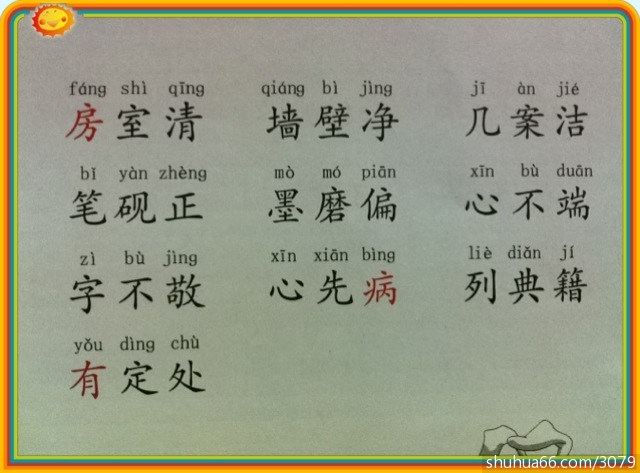 fáng shì qīng qiáng bì jìng jī àn jié
房室清 墙壁净 几案洁
bǐ yàn zhèng mò mó piān xīn bù duān
笔砚正 墨磨偏 心不端
zì bù jìng xīn xiān bìng liè diǎn jí
字不敬 心先病 列典籍
yǒu dìng chù
有定处
shuhua66.com/3079